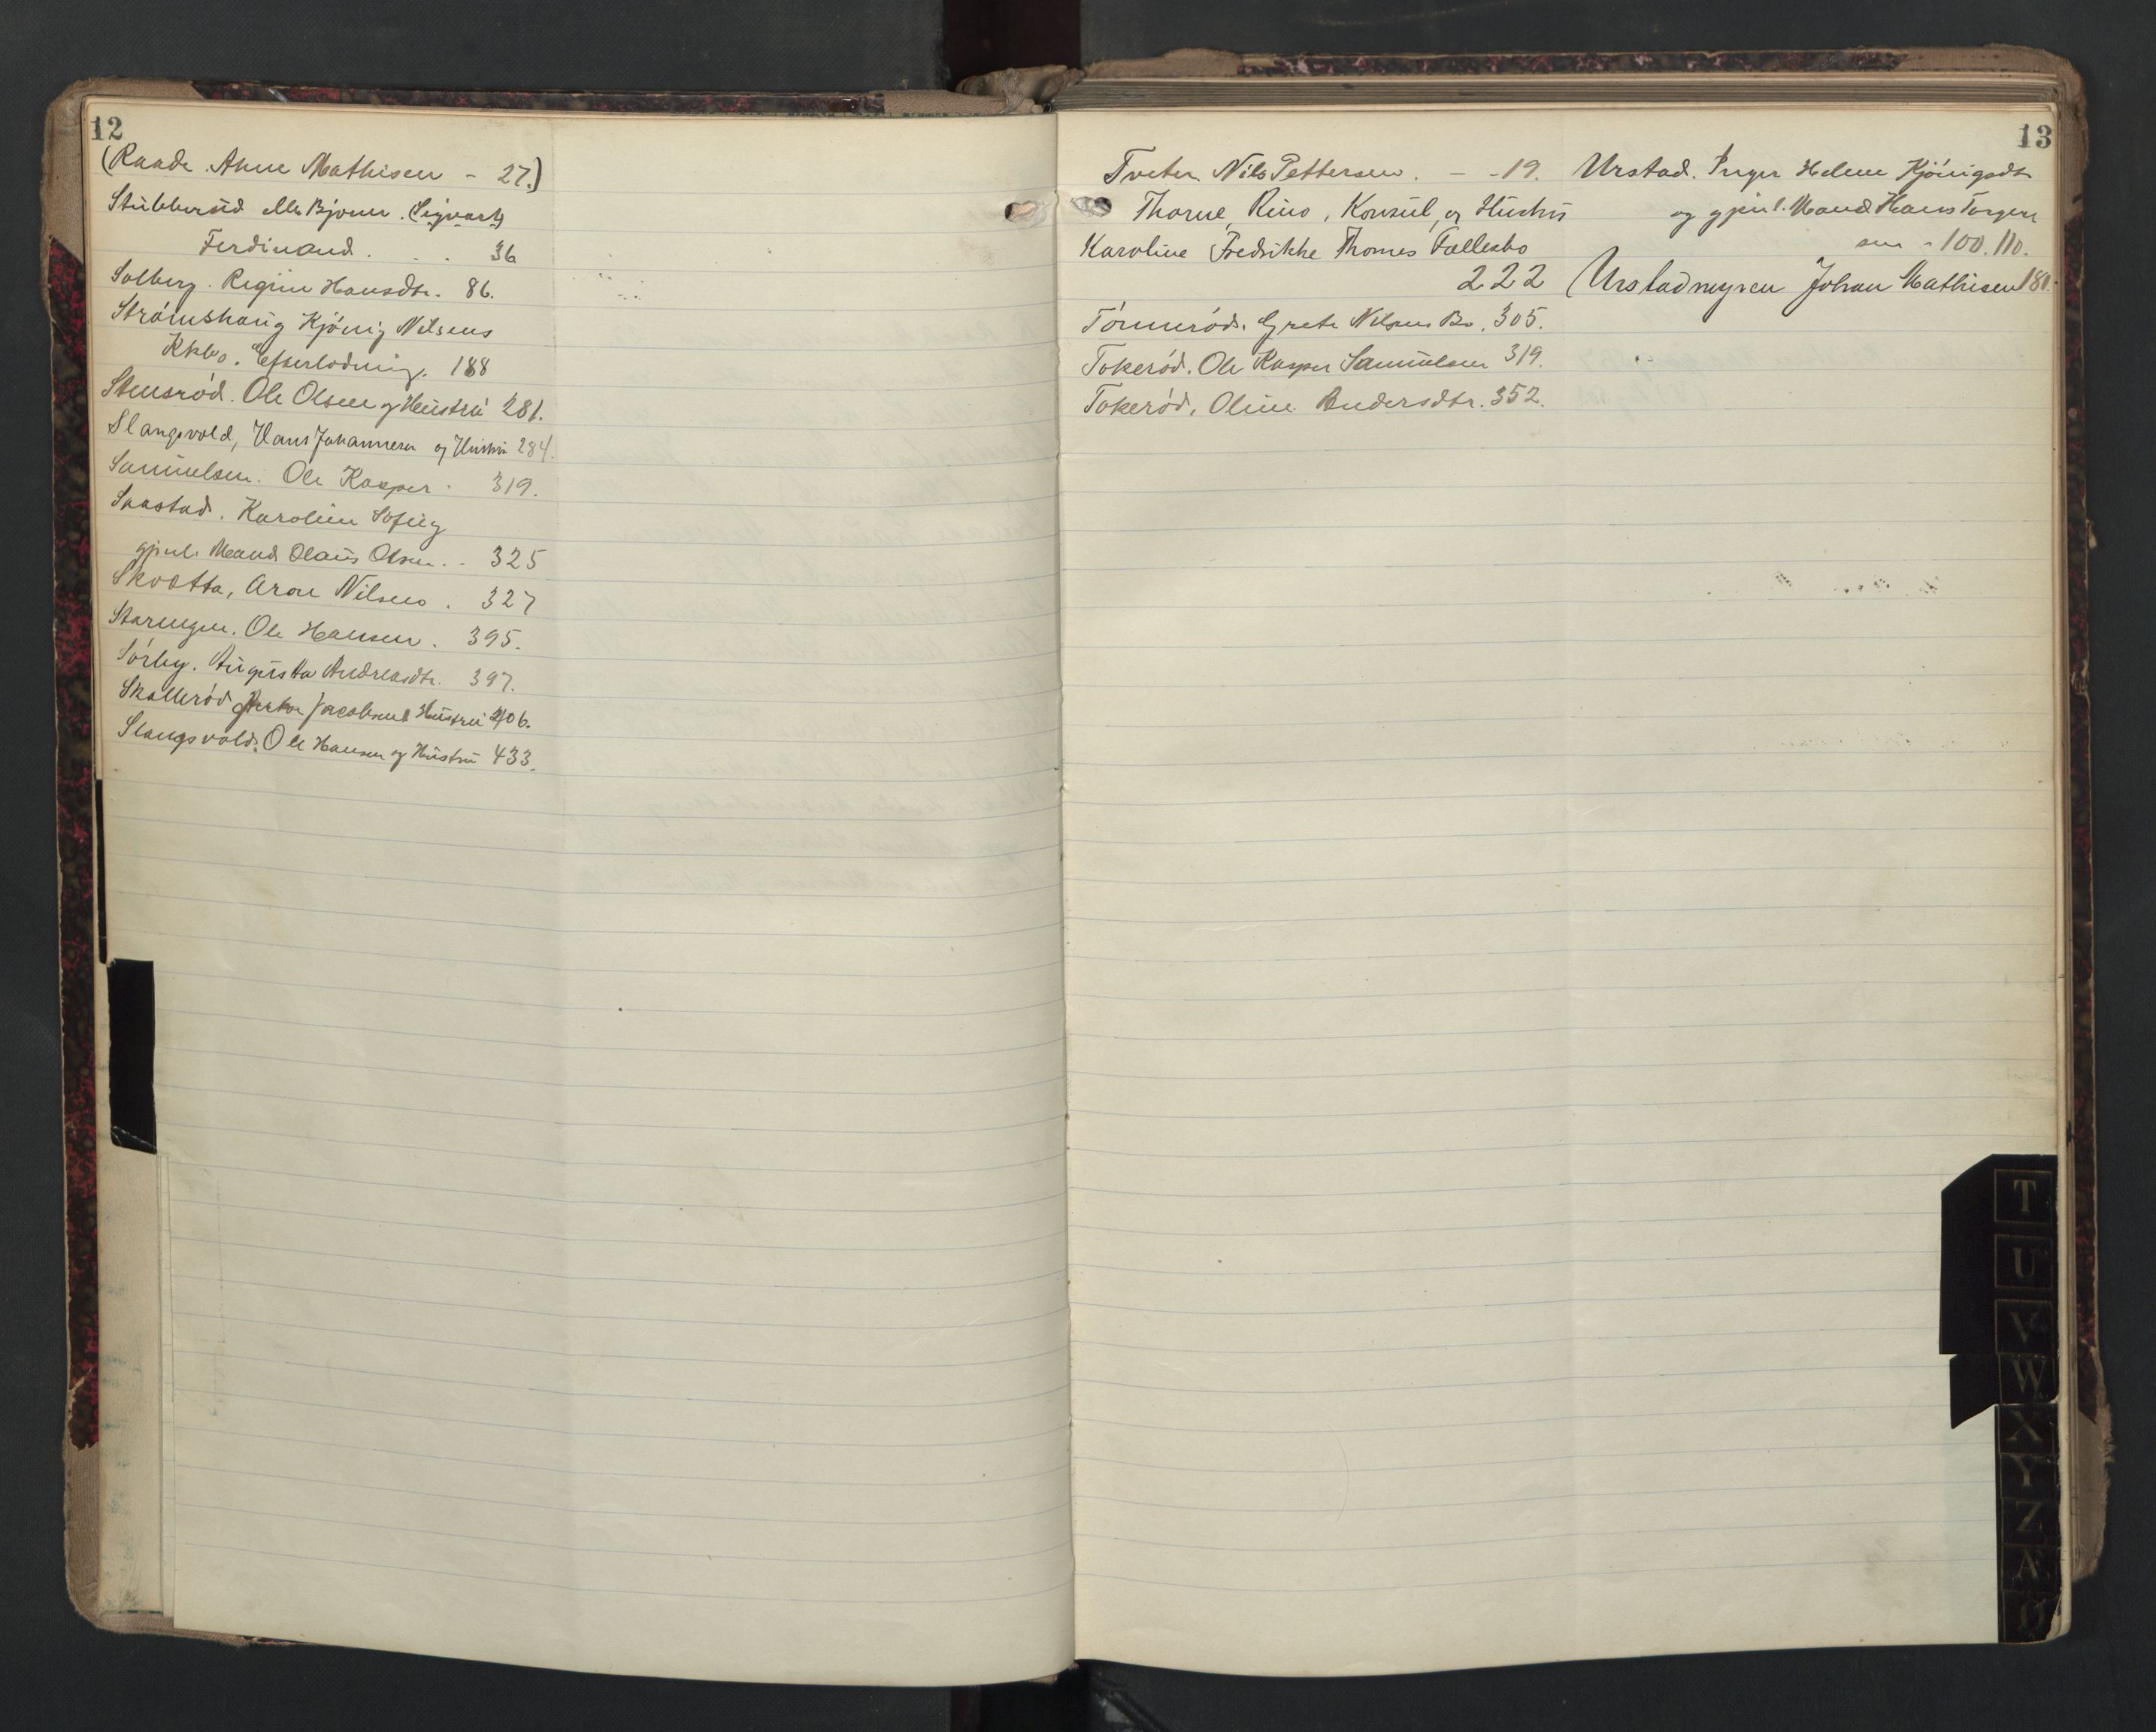 12
(Raade. Anne Mathisen - 27.)
Stubberud ell. Bjørner. (Sigvart)
Ferdinand . . . 36
Solberg. Regine Hansdtr. 86.
Strømshaug Kjönig Nilsens
Kkbo. Efterlodning. 188
Stensrød. Ole Olsen og Hustru 281.
Slangsvold, Hans Johannesen og Hustru 284.
Samuelsen. Ole Kasper . 319.
Saastad. Karoline Sofie og
gjenl. Mand Olaus Olsen. - 325
Skvætta, Aron Nilsens . 327
Starengen. Ole Hansen . 395.
Sørby. Augusta Andreasdtr. 397.
Skallerød Jacobsen & Hustru 406.
Slangsvold. Ole Hansen og Hustru 433.
13
Tveter. Nils Pettersen. - - 19.
Thorne, Rino, Konsul, og Hustru
Karoline Fredrikke Thornes Fællesbo
222
Tönneröd. Grete Nilsens Bo. 305.
Tokerød. Ole Kasper Samuelsen 319.
Tokerød, Oline Andersdtr. 352.
Urstad. Inger Helene Kjönigsdtr
og gjenl. Mand Hans Torger
sen - 100. 110.
(Urstadmyren Johan Mathisen 180.
T
U
V
W
X
Y
Z
Æ
Ø